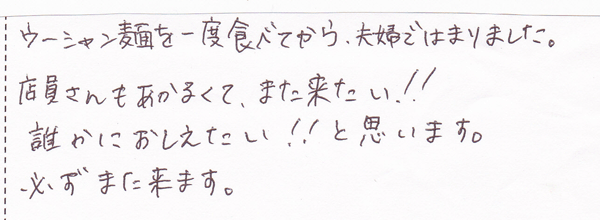 ウーシャン麺を一度食べてから、夫婦ではまりました。
店員さんもあかるくて、また来たい!!
誰かにおしえたい!!と思います。
必ずまた来ます。